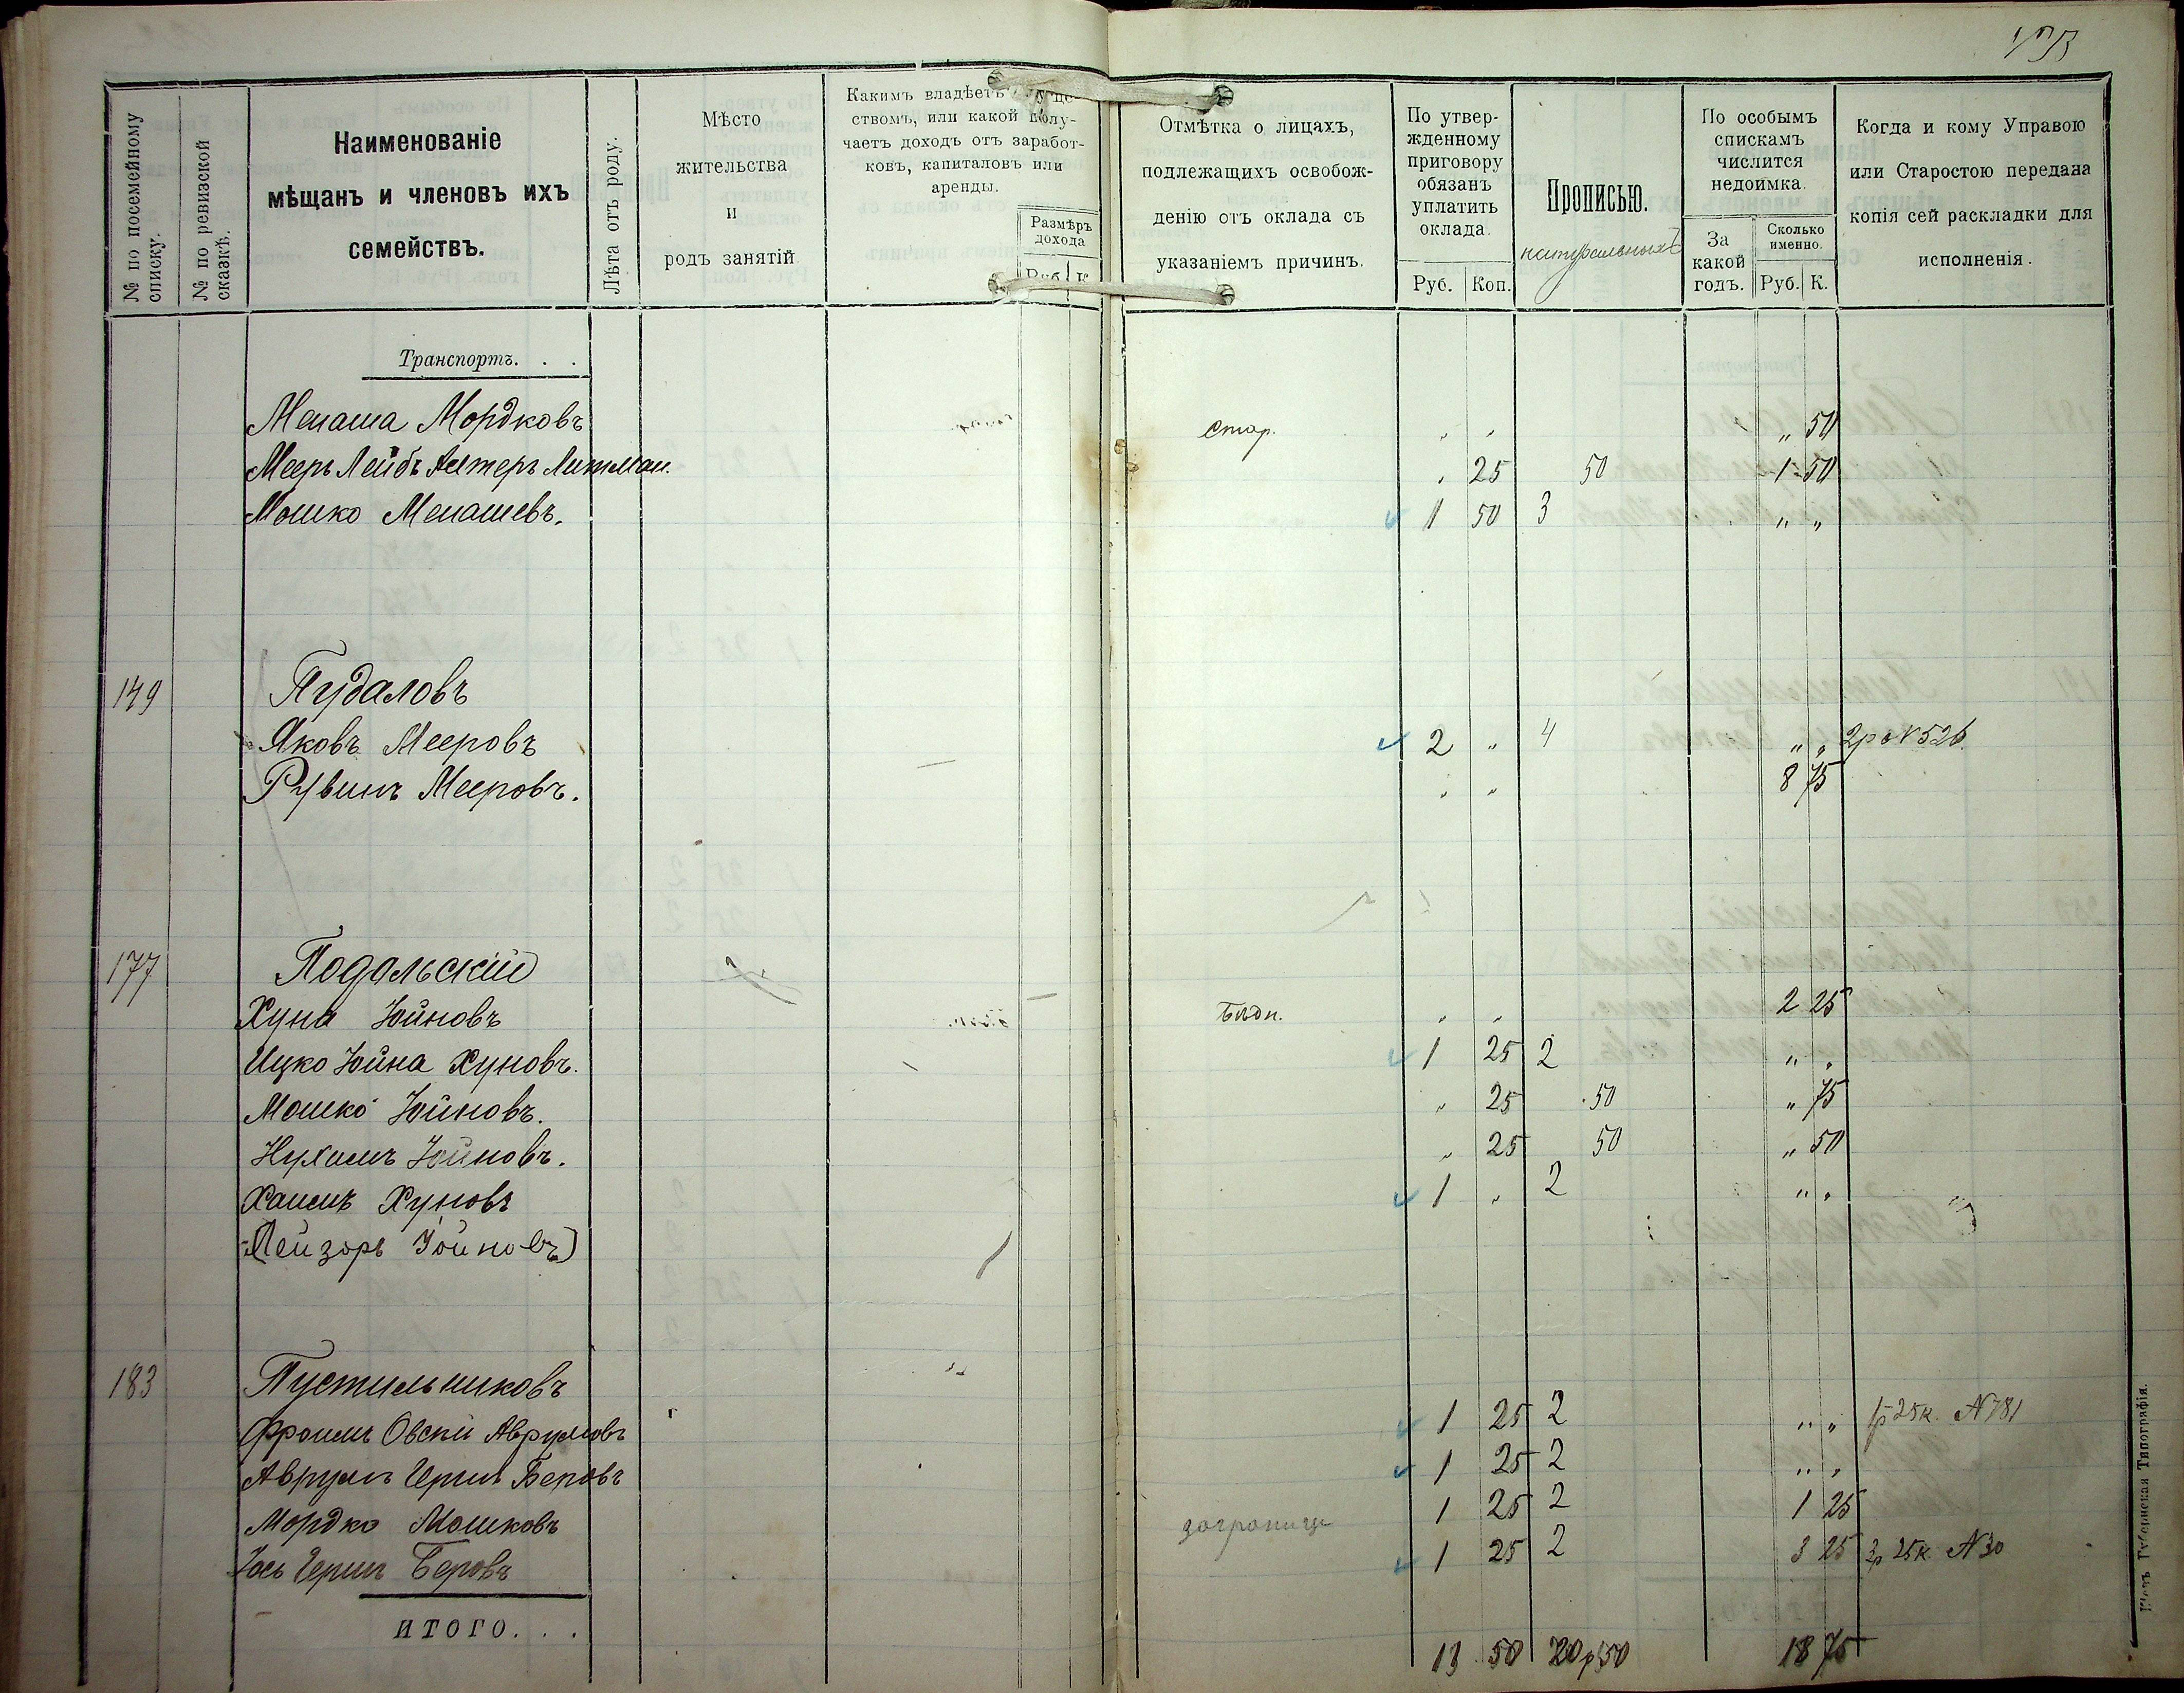 № по посемейному списку.
№ по ревизской сказкѣ.
Наименованіе
мѣщанъ и членовъ ихъ
семействъ.
Лѣта отъ роду.
Мѣсто
жительства
и
родъ занятій
Какимъ владѣетъ
ствомъ, или какой полу-
чаетъ доходъ отъ заработ-
ковъ, капиталовъ или
аренды.
Размѣръ
дохода
Руб. К
Отмѣтка о лицахъ,
подлежащихъ освобож-
денію отъ оклада съ
указаніемъ причинъ.
По утвер-
жденному
приговору
обязанъ
уплатить
оклада.
Руб. Коп.
Прописью.
натуральныхъ
По особымъ
спискамъ
числится
недоимка.
За
какой
годъ.
Сколько
именно.
Руб. К.
Когда и кому Управою
или Старостою передана
копія сей раскладки для
исполненія.
Транспортъ. . .
Менаша Мордковъ Стар. „ „ „ 50
Мееръ Лейбъ Алтеръ Литман. „ 25 50 1 50
Мошко Менашевъ. 1 50 3 „ „
149 Пудаловъ
Яковъ Мееровъ 2 „ 4 „ „ 2р № 526.
Рувинъ Мееровъ. „ „ 8 75
177 Подольскій
Хуна Іойновъ Бѣдн. „ „ 2 25
Ицко Іойна Хуновъ. 1 25 2 „ „
Мошко Іойновъ. „ 25 50 „ 75
Нухимъ Іойновъ. „ 25 50 „ 50
Хаимъ Хуновъ 1 „ 2 „ „
(Лейзоръ Іойновъ)
183 Пустильниковъ
Фроимъ Овсій Аврумовъ 1 25 2 „ „ 1р 25к. № 781
Аврумъ Герш Беровъ 1 25 2 „ „
Мордко Мошковъ заграницу 1 25 2 1 25
Іось Герш Беровъ 1 25 2 3 25 3р 25к № 30
ИТОГО. . . 13 50 20р50 18 75